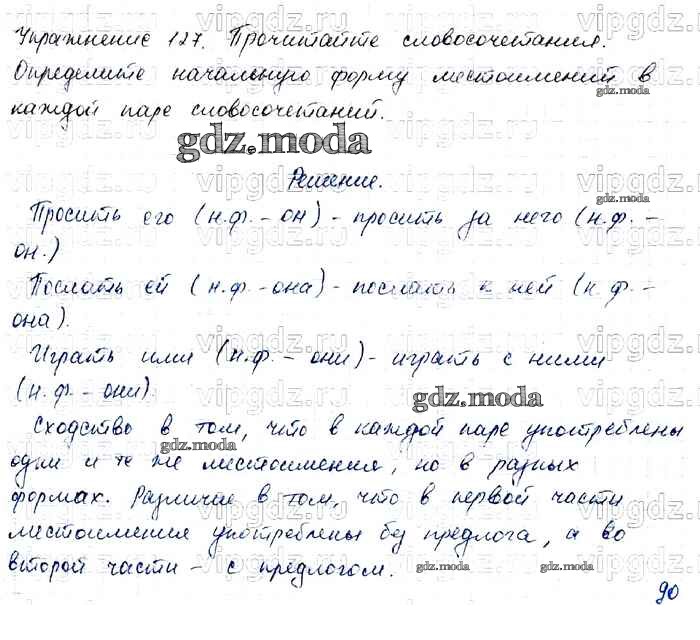 Упражнение 127. Прочитайте словосочетания.
Определите начальную форму местоимений в
каждой паре словосочетаний.
gdz.moda
gdz.moda
Решение.
Просить его (н.ф. – он) – просить за него (н.ф. –
он.)
Послать ей (н.ф. – она) – послать к ней (н.ф. –
она).
Играть ими (н.ф. – они) – играть с ними
(н.ф. – они)
gdz.moda
Сходство в том, что в каждой паре употреблены
gdz.moda
gdz.moda
одни и те же местоимения, но в разных
формах. Различие в том, что в первой части
местоимения употреблены без предлога, а во
второй части – с предлогом.
gdz.moda
90
vipgdz.ru